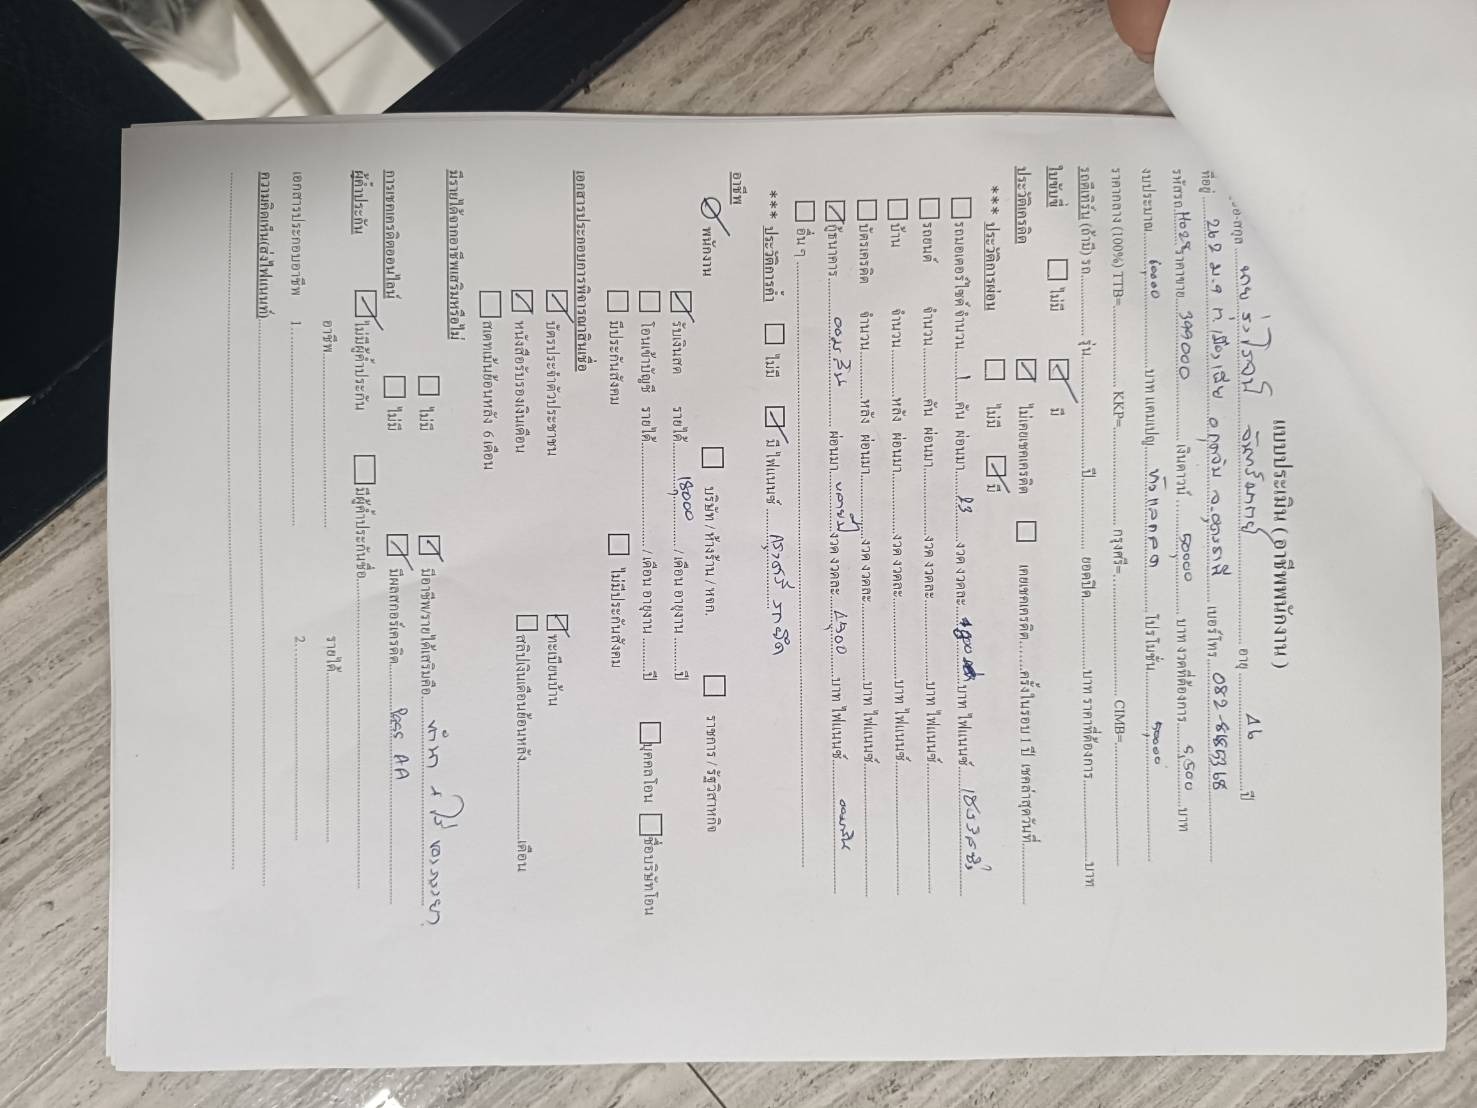 แบบประเมิน ( อาชีพพนักงาน )
นาย อายุ 46 ปี
ที่อยู่ 262 ม.9 เบอร์โทร 082-8185368
รหัสรถ H028 ราคาขาย 399000 เงินดาวน์ 50000 บาท งวดที่ต้องการ 5,500 บาท
งบประมาณ 60000 บาท แคมเปญ โปรโมชั่น 50,000
ราคากลาง (100%) TTB= KKP= กรุงศรี= CIMB=
รถตีเทิร์น (ถ้ามี) รถ รุ่น ปี ยอดปิด บาท ราคาที่ต้องการ บาท
ใบขับขี่ ไม่มี มี
ประวัติเครดิต ไม่เคยเชคเครดิต เคยเชคเครดิต ครั้งในรอบ 1 ปี เชคล่าสุดวันที่
*** ประวัติการผ่อน ไม่มี มี
รถมอเตอร์ไซค์ จำนวน 1 คัน ผ่อนมา 23 งวด งวดละ บาท ไฟแนนซ์
รถยนต์ จำนวน คัน ผ่อนมา งวด งวดละ บาท ไฟแนนซ์
บ้าน จำนวน หลัง ผ่อนมา งวด งวดละ บาท ไฟแนนซ์
บัตรเครดิต จำนวน หลัง ผ่อนมา งวด งวดละ บาท ไฟแนนซ์
กู้ธนาคาร ออมสิน ผ่อนมา หลายปี งวด งวดละ 4500 บาท ไฟแนนซ์ ออมสิน
อื่น ๆ
*** ประวัติการค้า ไม่มี มี ไฟแนนซ์
อาชีพ
พนักงาน บริษัท / ห้างร้าน / หจก. ราชการ / รัฐวิสาหกิจ
รับเงินสด รายได้ 18000 / เดือน อายุงาน ปี
โอนเข้าบัญชี รายได้ / เดือน อายุงาน ปี บุคคลโอน ชื่อบริษัทโอน
มีประกันสังคม ไม่มีประกันสังคม
เอกสารประกอบการพิจารณาสินเชื่อ
บัตรประจำตัวประชาชน ทะเบียนบ้าน
หนังสือรับรองเงินเดือน สลิปเงินเดือนย้อนหลัง เดือน
สเตทเม้นย้อนหลัง 6 เดือน
มีรายได้จากอาชีพเสริมหรือไม่
ไม่มี มีอาชีพ/รายได้เสริมคือ ทำนา
การเชคเครดิตออนไลน์ ไม่มี มีผลสกอร์เครดิต Pass AA
ผู้ค้ำประกัน ไม่มีผู้ค้ำประกัน มีผู้ค้ำประกันชื่อ
อาชีพ รายได้
เอกสารประกอบอาชีพ 1. 2.
ความคิดเห็น(ส่งไฟแนนท์)